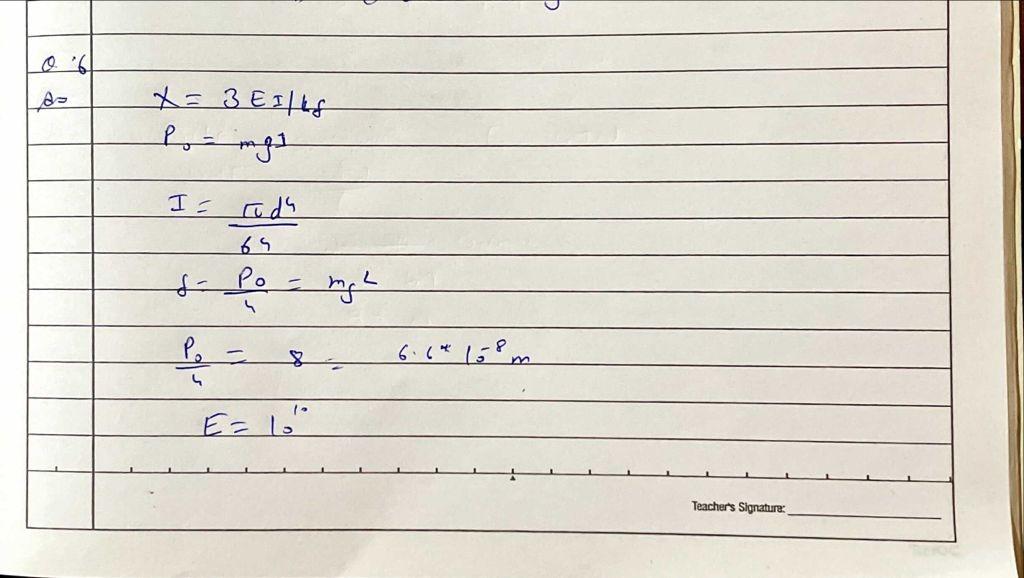 Q 6
A=
X = 3 E I /
P₀ = mg
I = πd⁴
64
P₀ = mg
4
P₀ = 8 = 6.6* 10⁻⁸ m
4
E = 10¹⁰
Teacher's Signature: